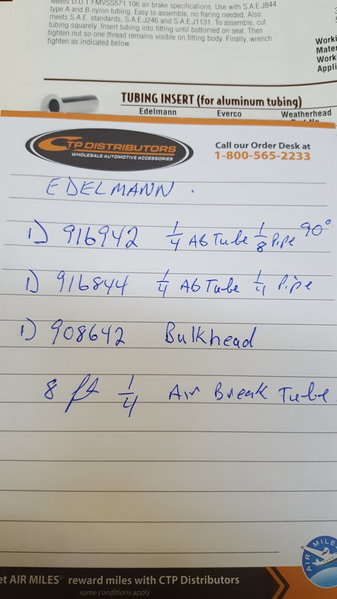 Meets D.O.T FMVSS571.106 air brake specifications. Use with S.A.E.J844
type A and B nylon tubing. Easy to assemble, no flaring needed. Also
meets S.A.E. standards, S.A.E.J246 and S.A.E.J1131. To assemble, cut
tubing squarely. Insert tubing into fitting until bottomed on seat. Then
tighten nut so one thread remains visible on fitting body. Finally, wrench
tighten as indicated below.
Worki
Mater
Work
Appli
TUBING INSERT (for aluminum tubing)
Edelmann Everco Weatherhead
CTP DISTRIBUTORS
WHOLESALE AUTOMOTIVE ACCESSORIES
Call our Order Desk at
1-800-565-2233
EDELMANN.
1) 916942 1/4 AB Tube 1/8 Pipe 90°
1) 916844 1/4 AB Tube 1/4 Pipe
1) 908642 Bulkhead
8 ft 1/4 Air Break Tube
AIR MILES
et AIR MILES® reward miles with CTP Distributors
some conditions apply